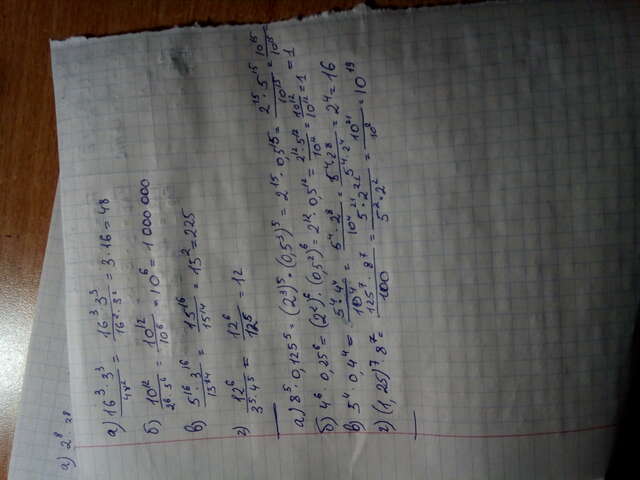 а) 2⁸ · 28
а) 16³·3³/48² = 16³·3³/16²·3² = 3·16 = 48
б) 10¹²/2⁶·5⁶ = 10¹²/10⁶ = 10⁶ = 1 000 000
в) 5¹⁶·3¹⁶/15¹⁴ = 15¹⁶/15¹⁴ = 15² = 225
г) 12⁶/3⁵·4⁵ = 12⁶/12⁵ = 12
а) 8⁵·0,125⁵ = (2³)⁵·(0,5³)⁵ = 2¹⁵·0,5¹⁵ = 2¹⁵·5¹⁵/10¹⁵ = 10¹⁵/10¹⁵ = 1
б) 4⁶·0,25⁶ = (2²)⁶·(0,5²)⁶ = 2¹²·0,5¹² = 2¹²·5¹²/10¹² = 10¹²/10¹² = 1
в) 5⁴·0,4⁴ = 5⁴·4⁴/10⁴ = 5⁴·2⁸/10⁴ = 5⁴·2⁸/5⁴·2⁴ = 2⁴ = 16
г) (1,25)⁷·8⁷ = 125⁷·8⁷/100 = 5²¹·2²¹/5²·2² = 10²¹/10² = 10¹⁹